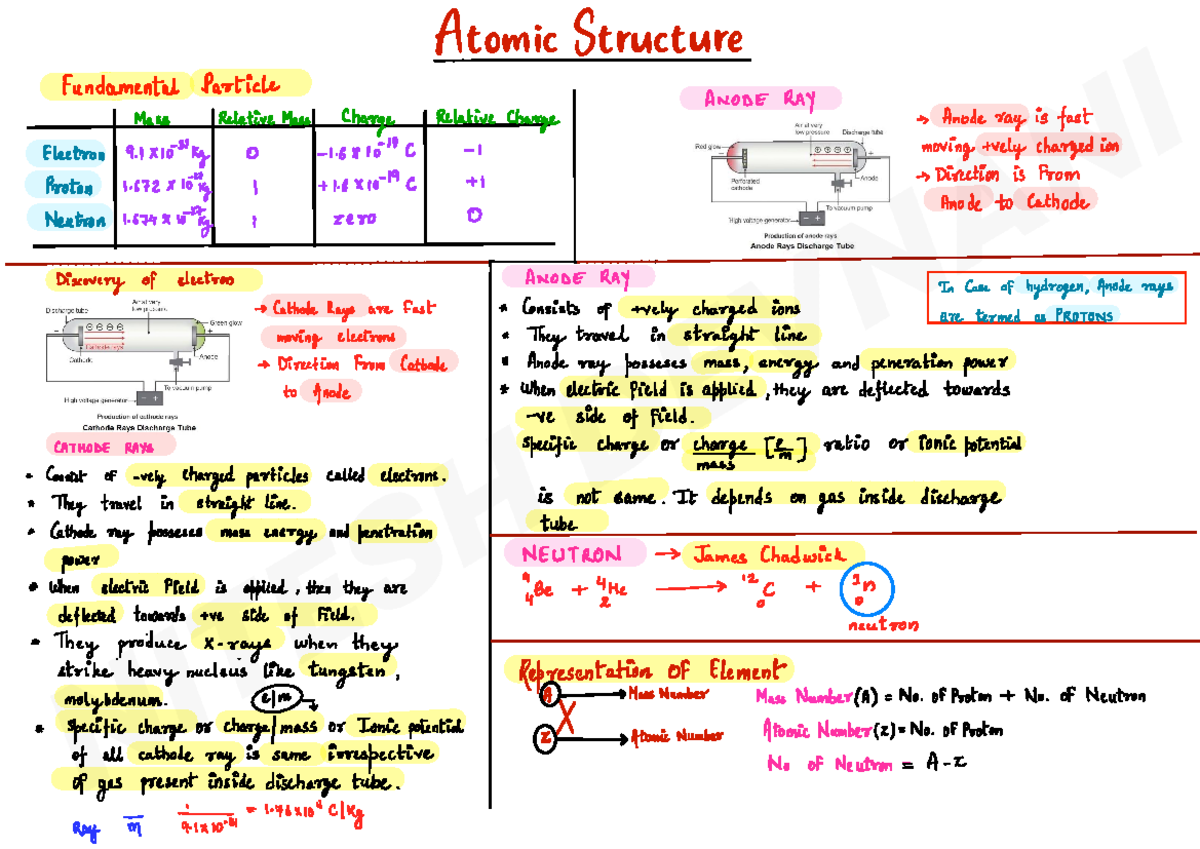 Atomic Structure
Fundamental Particle
Mass Relative Mass Charge Relative Charge
Electron 9.1 x 10⁻³¹ Kg 0 -1.6 x 10⁻¹⁹ C -1
Proton 1.672 x 10⁻²⁷ Kg 1 +1.6 x 10⁻¹⁹ C +1
Neutron 1.674 x 10⁻²⁷ Kg 1 zero 0
ANODE RAY
Air at very
low pressure
Discharge tube
Red glow
Perforated
cathode
Anode
To vacuum pump
High voltage generator
Production of anode rays
Anode Rays Discharge Tube
→ Anode ray is fast
moving +vely charged ion
→ Direction is From
Anode to Cathode
Discovery of electron
Air at very
low pressure
Discharge tube
Green glow
Cathode rays
Cathode
Anode
To vacuum pump
High voltage generator
Production of cathode rays
Cathode Rays Discharge Tube
→ Cathode Rays are Fast
moving electrons
→ Direction From Cathode
to Anode
CATHODE RAYS
* Consist of -vely charged particles called electrons.
* They travel in straight line.
* Cathode ray possesses mass energy and penetration
power
* When electric Field is applied, then they are
deflected towards +ve side of Field.
* They produce X-rays when they
strike heavy nucleus like tungsten,
molybdenum. e/m
* Specific charge or charge/mass or Ionic potential
of all cathode ray is same irrespective
of gas present inside discharge tube.
Ray m 9.1x10⁻³¹ = 1.76x10 C/Kg
ANODE RAY
* Consists of +vely charged ions
* They travel in straight line
* Anode ray possesses mass, energy and peneration power
* When electric field is applied, they are deflected towards
-ve side of Field.
Specific charge or charge/mass [e/m] ratio or ionic potential
is not same. It depends on gas inside discharge
tube
In Case of hydrogen, Anode rays
are termed as PROTONS
NEUTRON → James Chadwick
⁹₄Be + ⁴₂He → ¹²₀C + ¹₀n
neutron
Representation Of Element
A → Mass Number
X
Z → Atomic Number
Mass Number (A) = No. of Proton + No. of Neutron
Atomic Number (Z) = No. of Proton
No of Neutron = A - Z